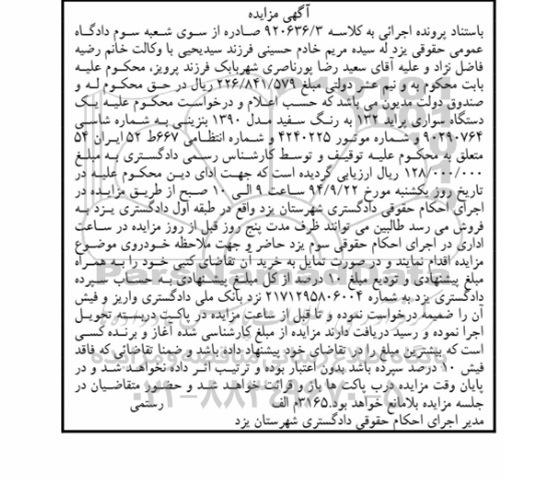 آگهی مزایده
باستناد پرونده اجرائی به کلاسه ۹۲۰۶۳۶/۳ صادره از سوی شعبه سوم دادگاه
عمومی حقوقی یزد له سیده مریم خادم حسینی فرزند سیدیحیی با وکالت خانم رضیه
فاضل نژاد و علیه آقای سعید رضا پورناصری شهربابک فرزند پرویز، محکوم علیه
بابت محکوم به و نیم عشر دولتی مبلغ ۲۲۶/۸۴۱/۵۷۹ ریال در حق محکوم له و
صندوق دولت مدیون می باشد که حسب اعلام و درخواست محکوم علیه یک
دستگاه سواری پراید ۱۳۲ به رنگ سفید مدل ۱۳۹۰ بنزینی به شماره شاسی
۹۰۲۹۰۷۶۴ و شماره موتور ۴۲۴۰۲۲۵ و شماره انتظامی ۶۶۷ط ۵۲ ایران ۵۴
متعلق به محکوم علیه توقیف و توسط کارشناس رسمی دادگستری به مبلغ
۱۲۸/۰۰۰/۰۰۰ ریال ارزیابی گردیده است که جهت ادای دین محکوم علیه در
تاریخ روز یکشنبه مورخ ۹۴/۹/۲۲ ساعت ۹ الی ۱۰ صبح از طریق مزایده در
اجرای احکام حقوقی دادگستری شهرستان یزد واقع در طبقه اول دادگستری یزد به
فروش می رسد طالبین می توانند ظرف مدت پنج روز قبل از روز مزایده در ساعت
اداری در اجرای احکام حقوقی سوم یزد حاضر و جهت ملاحظه خودروی موضوع
مزایده اقدام نمایند و در صورت تمایل به خرید آن تقاضای کتبی خود را به همراه
مبلغ پیشنهادی و تودیع مبلغ ۱۰ درصد از کل مبلغ پیشنهادی به حساب سپرده
دادگستری یزد به شماره ۲۱۷۱۲۹۵۸۰۶۰۰۴ نزد بانک ملی دادگستری واریز و فیش
آن را ضمیمه درخواست نموده و تا قبل از ساعت مزایده در پاکت دربسته تحویل
اجرا نموده و رسید دریافت دارند مزایده از مبلغ کارشناسی شده آغاز و برنده کسی
است که بیشترین مبلغ را در تقاضای خود پیشنهاد داده باشد و ضمنا تقاضائی که فاقد
فیش ۱۰ درصد سپرده باشد بدون اعتبار بوده و ترتیب اثر داده نخواهد شد و در
پایان وقت مزایده درب پاکت ها باز و قرائت خواهد شد و حضور متقاضیان در
جلسه مزایده بلامانع خواهد بود.۳۱۶۵م الف رستمی
مدیر اجرای احکام حقوقی دادگستری شهرستان یزد